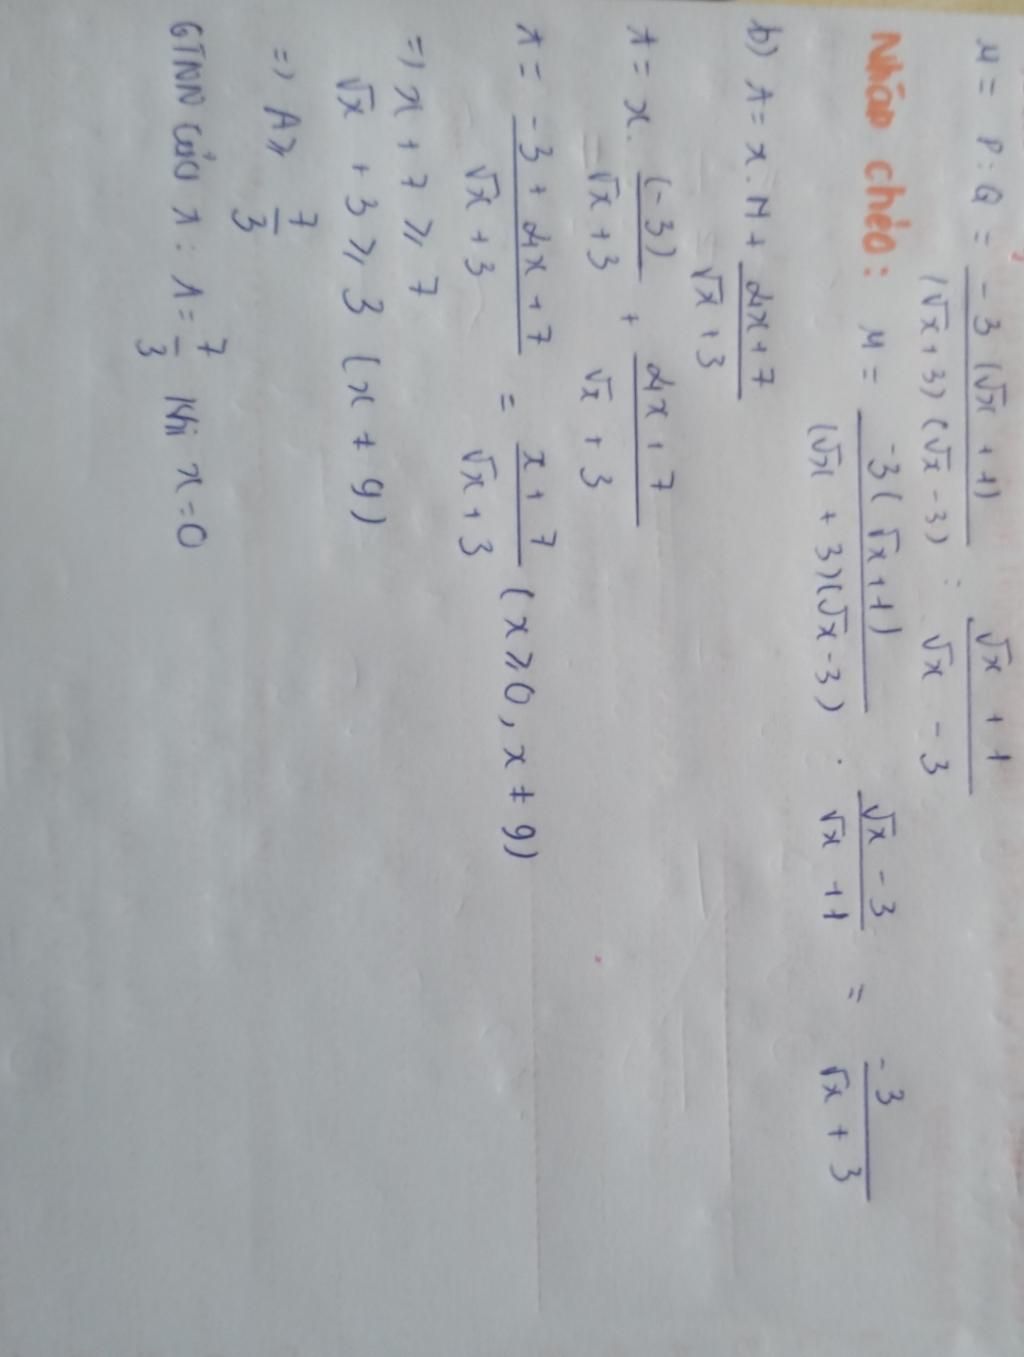 M = P : Q = -3(√x + 1) / (√x + 3)(√x - 3) : √x + 1 / √x - 3
Nháp chéo: M = -3(√x + 1) / (√x + 3)(√x - 3) . √x - 3 / √x + 1 = -3 / √x + 3
b) A = x . M + 4x + 7 / √x + 3
A = x . (-3) / √x + 3 + 4x + 7 / √x + 3
A = -3 + 4x + 7 / √x + 3 = x + 7 / √x + 3 (x ≥ 0, x ≠ 9)
=> x + 7 ≥ 7
√x + 3 ≥ 3 (x ≠ 9)
=> A ≥ 7/3
GTNN của A : A = 7/3 khi x = 0